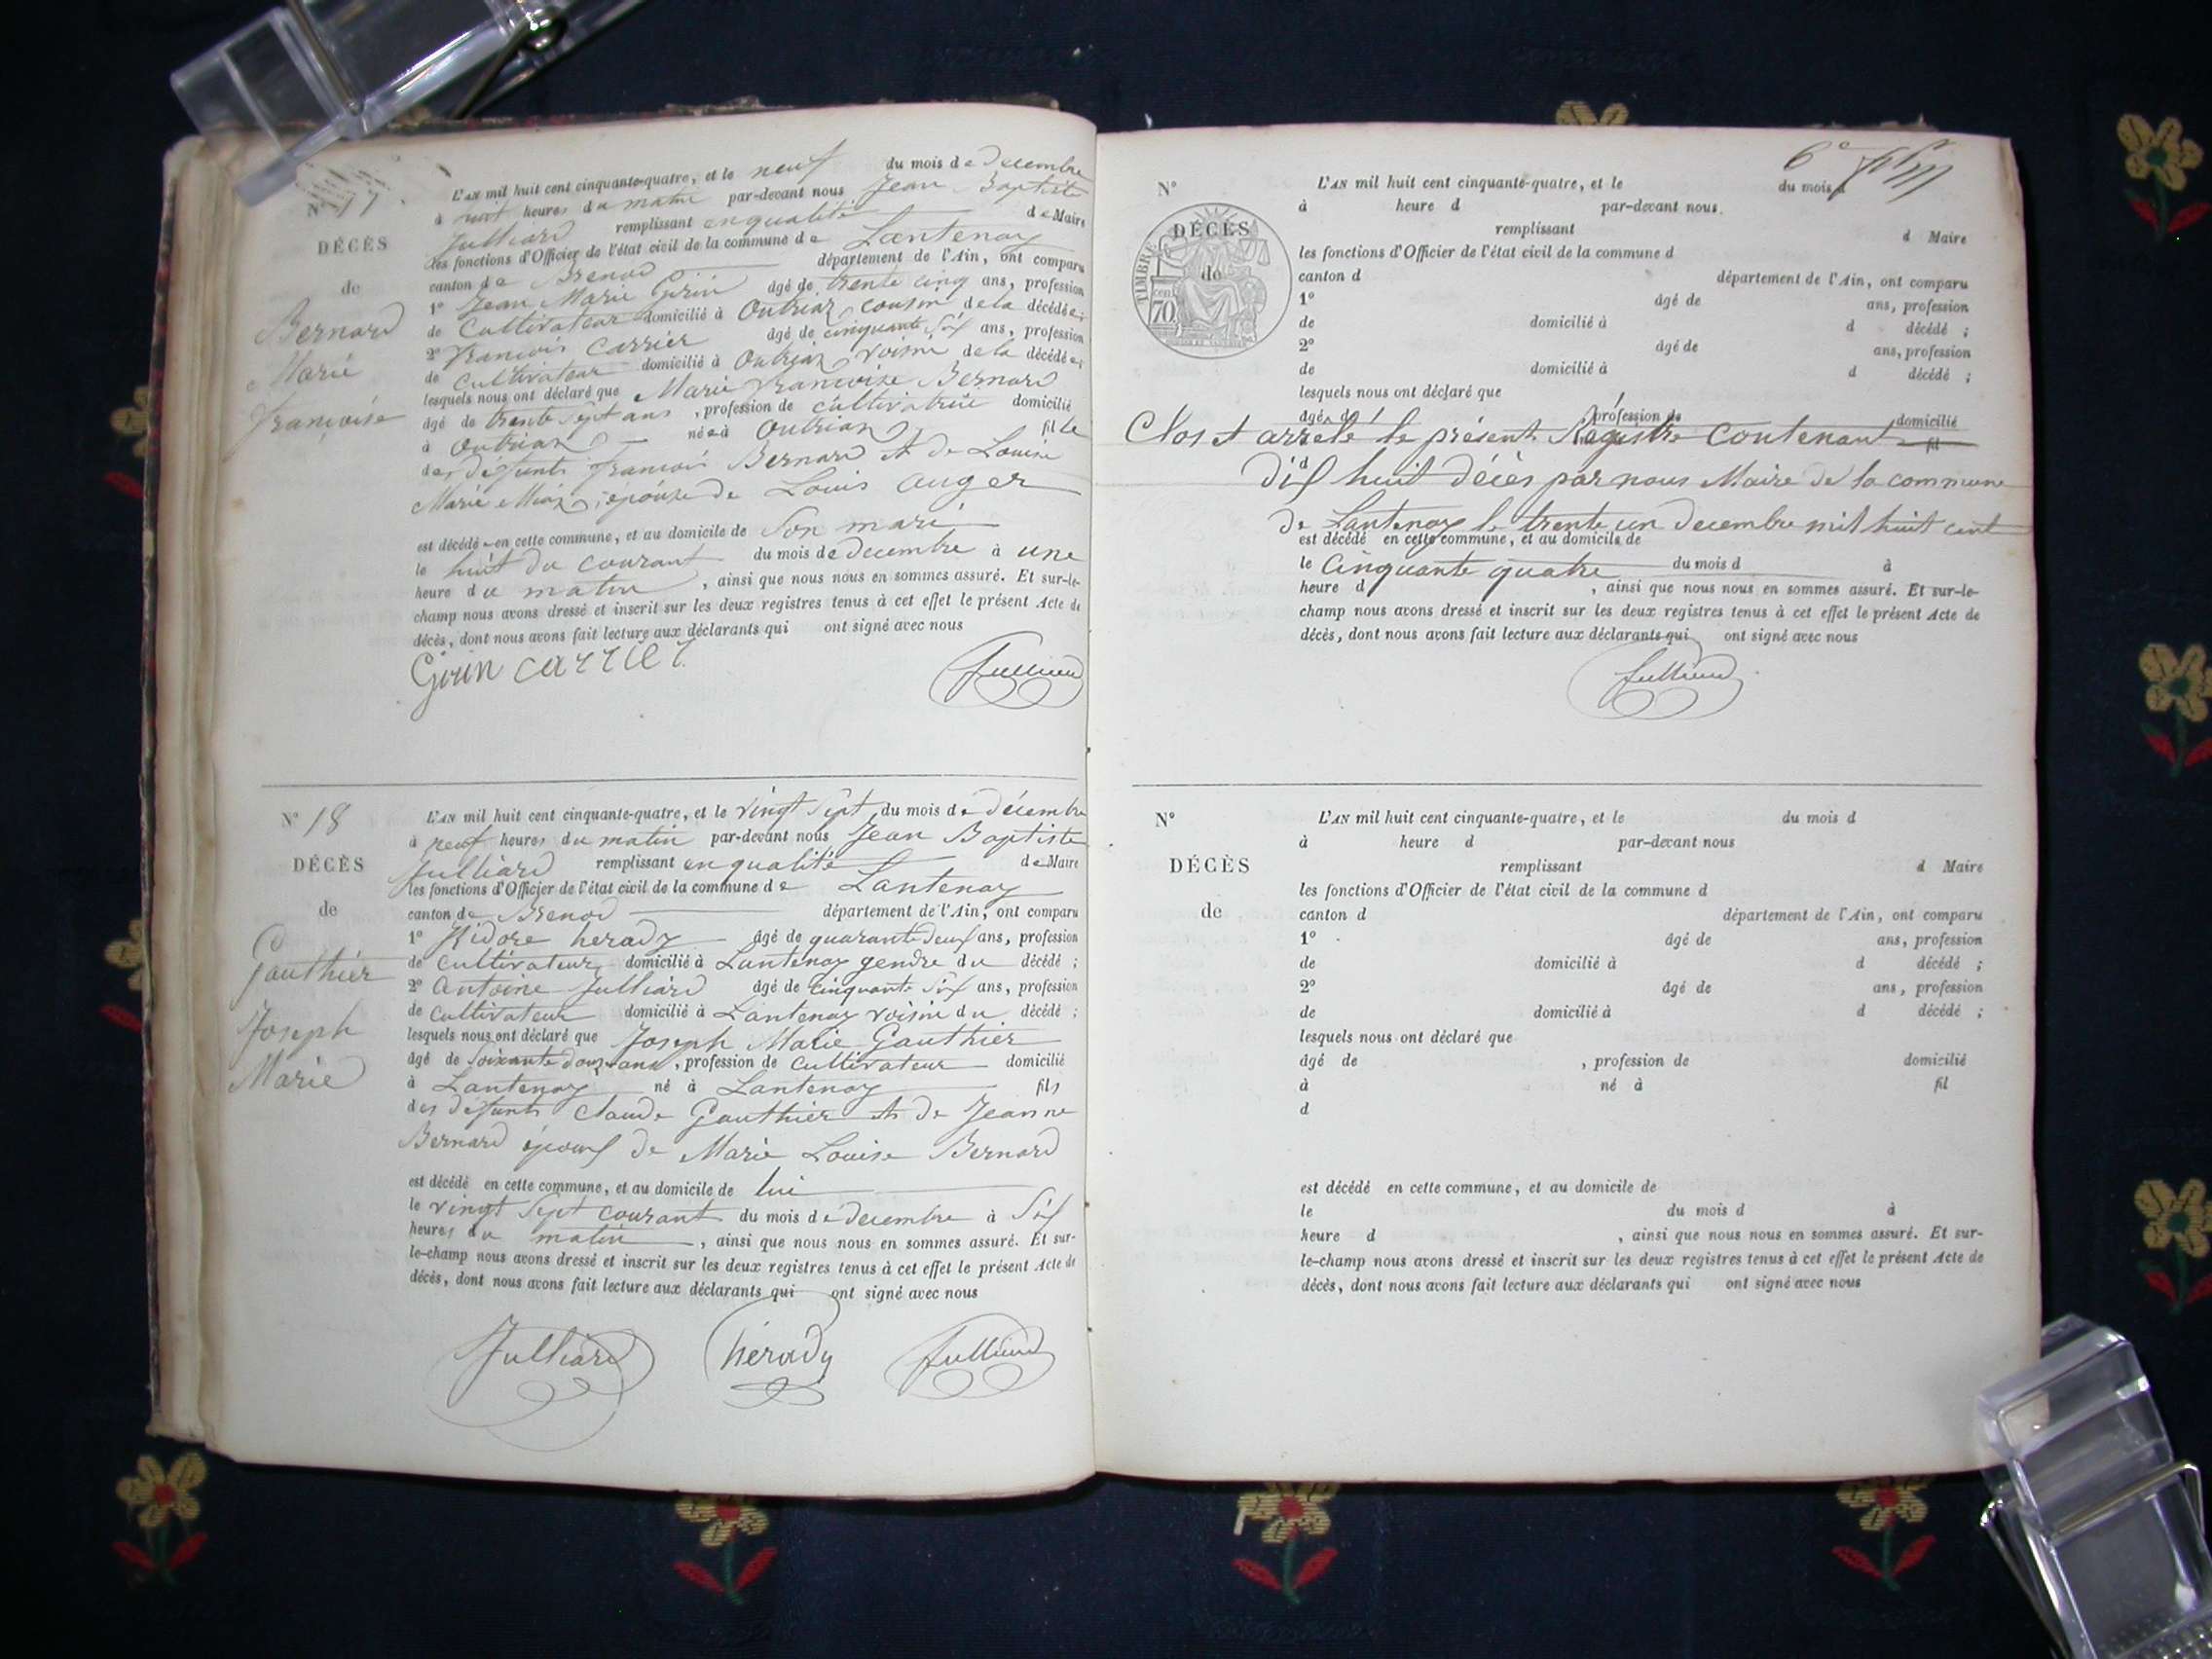 N° 17
DÉCÈS
de
Bernard
Marie
françoise
L'AN mil huit cent cinquante-quatre, et le neuf du mois de decembre
à huit heures du matin par-devant nous Jean Baptiste
Julliard remplissant en qualité de Maire
les fonctions d'Officier de l'état civil de la commune de Lantenay
canton de Brenod département de l'Ain, ont comparu
1° Jean Marie Girin âgé de trente cinq ans, profession
de Cultivateur domicilié à Outriaz cousin de la décédée;
2° francois Carrier âgé de cinquante Six ans, profession
de cultivateur domicilié à Outriaz voisin de la décédée;
lesquels nous ont déclaré que Marie francoise Bernard
âgé de trente Sept ans, profession de cultivatrice domicilié
à Outriaz née à Outriaz fille
des défunts francois Bernard et de Louise
Marie épouse de Louis auger
est décédée en cette commune, et au domicile de Son mari
le huit du courant du mois de decembre à une
heure du matin, ainsi que nous nous en sommes assuré. Et sur-le-
champ nous avons dressé et inscrit sur les deux registres tenus à cet effet le présent Acte de
décès, dont nous avons fait lecture aux déclarants qui ont signé avec nous
Girin carrier Julliard
N° 18
DÉCÈS
de
Gauthier
Joseph
Marie
L'AN mil huit cent cinquante-quatre, et le vingt Sept du mois de décembre
à neuf heures du matin par-devant nous Jean Baptiste
Julliard remplissant en qualité de Maire
les fonctions d'Officier de l'état civil de la commune de Lantenay
canton de Brenod département de l'Ain, ont comparu
1° Isidore herady âgé de quarante deux ans, profession
de cultivateur domicilié à Lantenay gendre du décédé;
2° Antoine Julliard âgé de cinquante Six ans, profession
de cultivateur domicilié à Lantenay voisin du décédé;
lesquels nous ont déclaré que Joseph Marie Gauthier
âgé de Soixante douze ans, profession de cultivateur domicilié
à Lantenay né à Lantenay fils
des défunts Claude Gauthier et de Jeanne
Bernard époux de Marie Louise Bernard
est décédé en cette commune, et au domicile de lui
le vingt Sept courant du mois de decembre à Six
heures du matin, ainsi que nous nous en sommes assuré. Et sur-
le-champ nous avons dressé et inscrit sur les deux registres tenus à cet effet le présent Acte de
décès, dont nous avons fait lecture aux déclarants qui ont signé avec nous
Julliard hérady Julliard
6e
N°
DÉCÈS
de
TIMBRE
70 cen
L'AN mil huit cent cinquante-quatre, et le du mois d
à heure d par-devant nous
remplissant d Maire
les fonctions d'Officier de l'état civil de la commune d
canton d département de l'Ain, ont comparu
1° âgé de ans, profession
de domicilié à d décédé;
2° âgé de ans, profession
de domicilié à d décédé;
lesquels nous ont déclaré que
âgé de profession de domicilié
Clos et arrêté le présent Registre contenant fil
d
dix huit décès par nous Maire de la commune
de Lantenay le trente un decembre mil huit cent
est décédé en cette commune, et au domicile de
le Cinquante quatre du mois d à
heure d, ainsi que nous nous en sommes assuré. Et sur-le-
champ nous avons dressé et inscrit sur les deux registres tenus à cet effet le présent Acte de
décès, dont nous avons fait lecture aux déclarants qui ont signé avec nous
Julliard
N°
DÉCÈS
de
L'AN mil huit cent cinquante-quatre, et le du mois d
à heure d par-devant nous
remplissant d Maire
les fonctions d'Officier de l'état civil de la commune d
canton d département de l'Ain, ont comparu
1° âgé de ans, profession
de domicilié à d décédé;
2° âgé de ans, profession
de domicilié à d décédé;
lesquels nous ont déclaré que
âgé de, profession de domicilié
à né à fil
d
est décédé en cette commune, et au domicile de
le du mois d à
heure d, ainsi que nous nous en sommes assuré. Et sur-
le-champ nous avons dressé et inscrit sur les deux registres tenus à cet effet le présent Acte de
décès, dont nous avons fait lecture aux déclarants qui ont signé avec nous